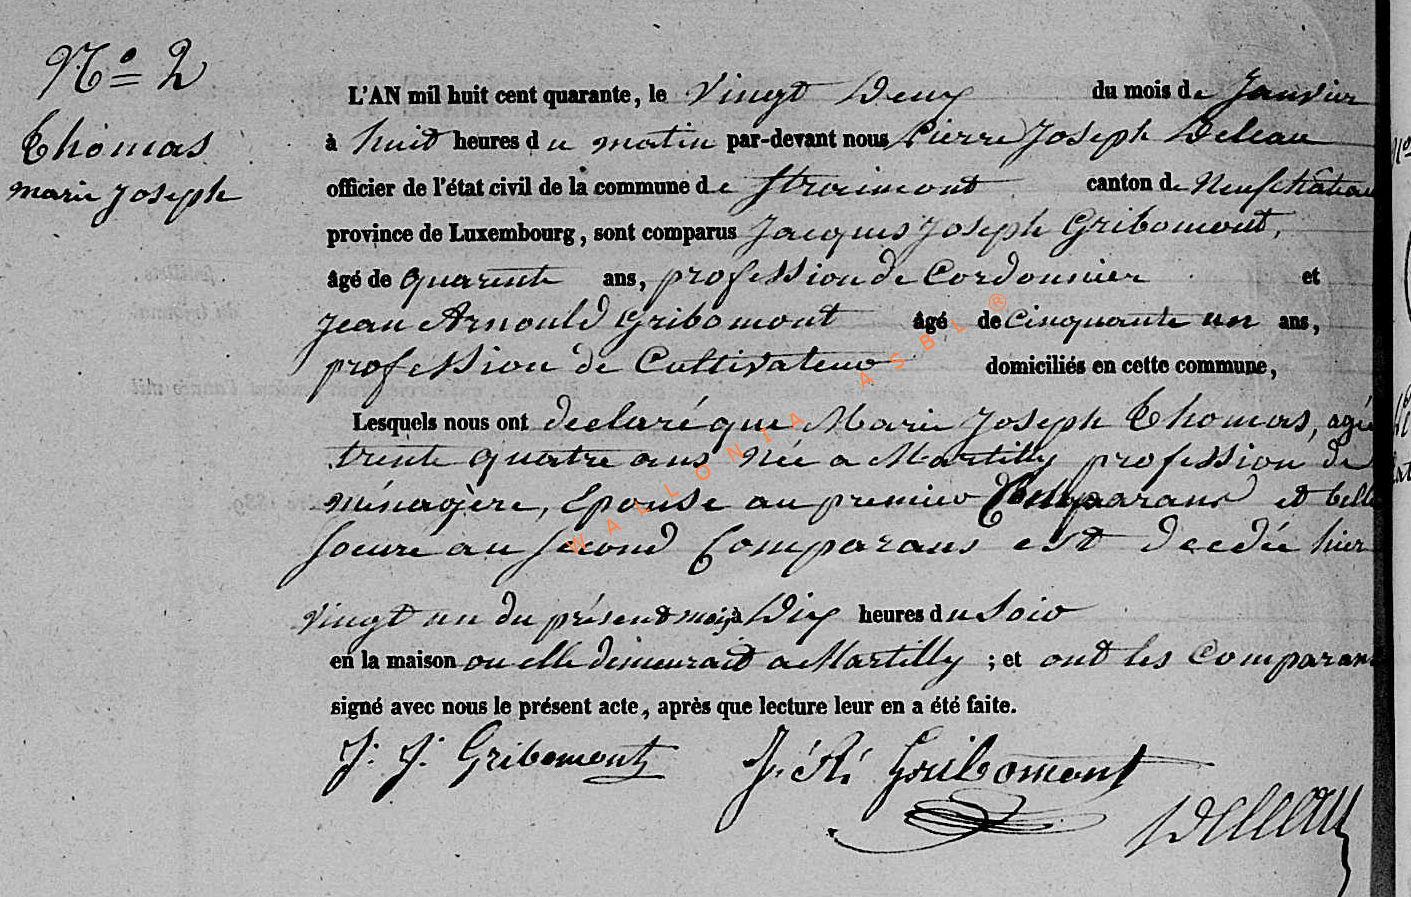 N.o 2
Thomas
marie Joseph
L'AN mil huit cent quarante, le Vingt Deux du mois de Janvier
à huit heures du matin par-devant nous Pierre Joseph Deleau
officier de l'état civil de la commune de Straimont canton de Neufchâteau
province de Luxembourg, sont comparus Jacques Joseph Gribomont,
âgé de quarente ans, profession de Cordonnier et
Jean Arnould Gribomont âgé de cinquante un ans,
profession de Cultivateur domiciliés en cette commune,
Lesquels nous ont declaré que Marie Joseph Thomas, agée
trente quatre ans Née a Martilly profession de
ménagère, Epouse au premier Comparant et belle
soeure au second Comparans est decedée hier
vingt un du présent mois, à Dix heures du Soir
en la maison ou elle demeurait a Martilly ; et ont les Comparans
signé avec nous le présent acte, après que lecture leur en a été faite.
J. J. Gribomont J. R. Gribomont
Delleau
WALLONIA ASBL ®